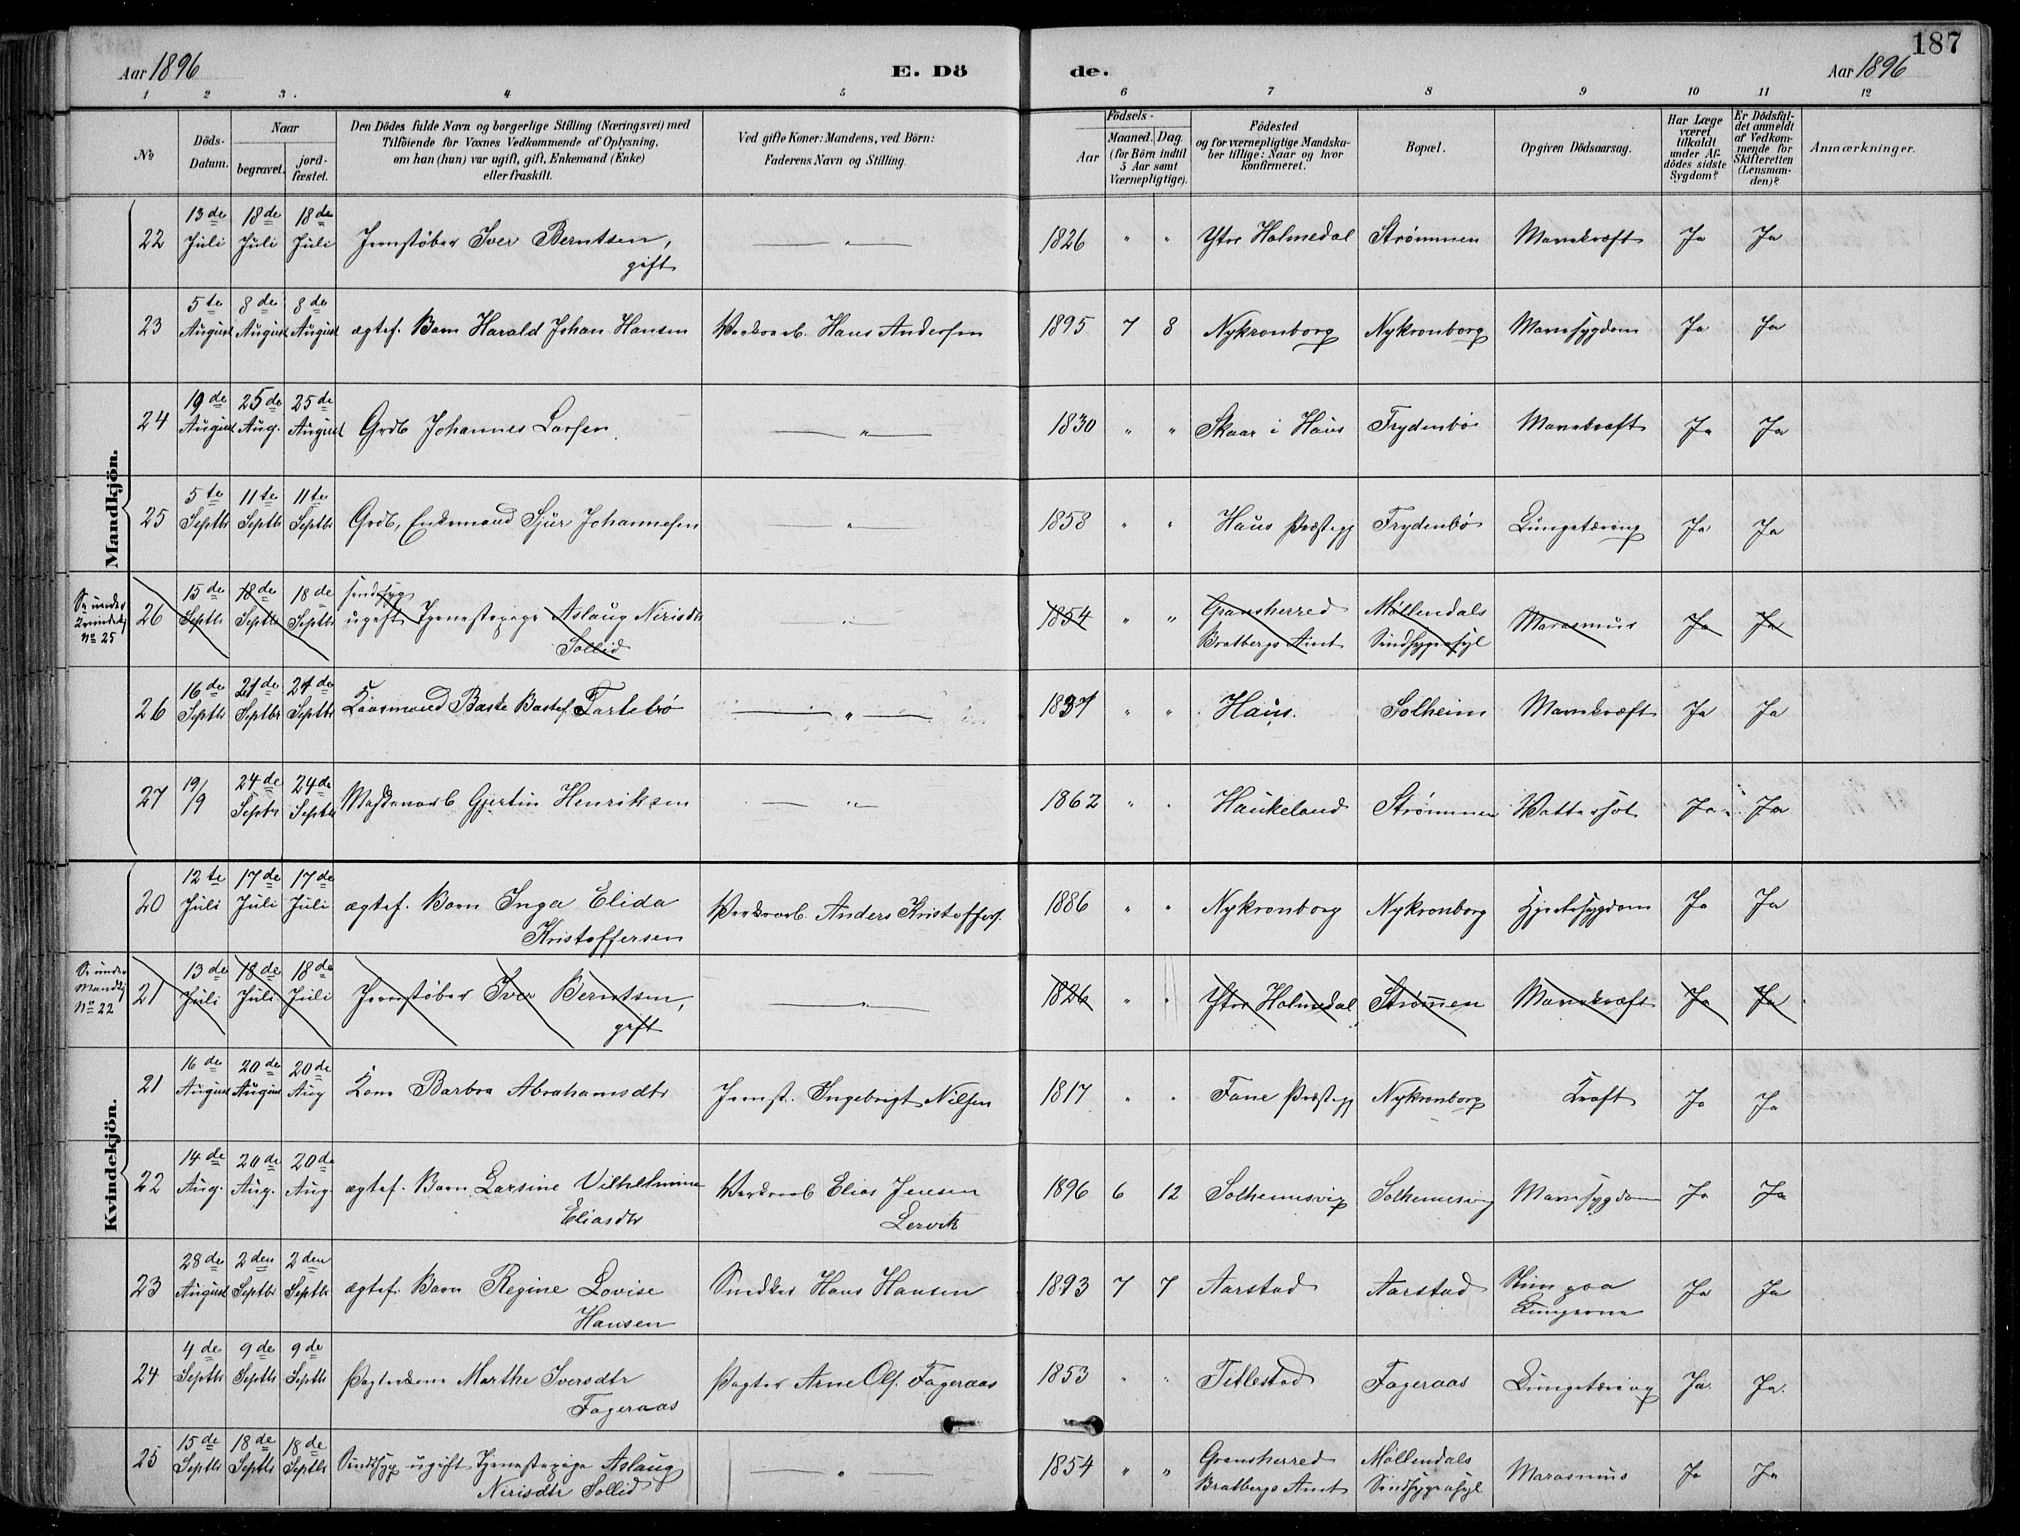 187
Aar 1896 E. Dö de. Aar 1896
1 2 3. 4 5 6 7 8 9 10 11 12
No
Döds-Datum.
Naar
begravet.
jordfæstet.
Den Dödes fulde Navn og borgerlige Stilling (Næringsvei) med
Tilföiende for Voxnes Vedkommende af Oplysning,
om han (hun) var ugift, gift, Enkemand (Enke)
eller fraskilt.
Ved gifte Koner: Mandens, ved Börn:
Faderens Navn og Stilling.
Födsels-
Aar
Maaned. Dag.
(for Börn indtil
5 Aar samt
Værnepligtige).
Födested
og for værnepligtige Mandskaber tillige: Naar og hvor
konfirmeret.
Bopæl.
Opgiven Dödsaarsag.
Har Læge
været
tilkaldt
under Afdödes sidste
Sygdom?
Er Dödsfaldet anmeldt
af Vedkommende for
Skifteretten
(Lensmanden)?
Anmærkninger.
Mandkjön.
22 13de Juli 18de Juli 18de Juli Jernstøber Iver Berntsen, gift — " — 1826 " " Ytre Holmedal Strømmen Mavekræft Ja Ja
23 5te August 8de August 8de August ægtef. Barn Harald Johan Hansen Værksarb. Hans Andersen 1895 7 8 Nykronborg Nykronborg Mavesygdom Ja Ja
24 19de August 25de Aug. 25de August Grdb Johannes Larsen. — " — 1830 " " Skaar i Haus Frydenbø Mavekræft Ja Ja
25 5te Septbr 11te Septbr 11te Septbr Grdb, Enkemand Sjur Johannesen — " — 1858 " " Haus Præstegj Frydenbø Lungetæring Ja Ja
Se under Kvindekj No 25
26 15de Septbr 18de Septbr 18de Septbr sindssyg ugift Tjenestepige Aslaug Nirisdtr Sollid — " — 1854 " " Gransherred Bratbergs Amt Møllendals Sindssygeasyl Marasmus Ja Ja
26 16de Septbr 21de Septbr 21de Septbr Kaarmand Baste Bastes. Tartebrø — " — 1837 " " Haus. Solheim Mavekræft Ja Ja
27 19/9 24de Septbr 24de Septbr Gjertin Henriksen — " — 1862 " " Haukeland Strømmen Vattersot Ja Ja
Kvindekjön.
20 12te Juli 17de Juli 17de Juli ægtef. Barn Inga Elida Kristoffersen Værksarb. Anders Kristoffers. 1886 " " Nykronborg Nykronborg Hjertesygdom Ja Ja
Se under Mandkj No 22
21 13de Juli 18de Juli 18de Juli Jernstøber Iver Berntsen, gift — " — 1826 " " Ytre Holmedal Strømmen Mavekræft Ja Ja
21 16de August 20de August 20de Aug Kone Barbra Abrahamsdtr Jernst. Ingebrigt Nilsen 1817 " " Fane Præstegj Nykronborg Kræft Ja Ja
22 14de Aug. 20de Aug. 20de Aug. ægtef. Barn Larsine Vilhelmine Eliasdtr Værksarb Elias Jensen Lervik 1896 6 12 Solhemsvig Solhemsvig Mavesygdom Ja Ja
23 28de August 2den Septbr 2den Septbr ægtef. Barn Regine Lovise Hansen Snedker Hans Hansen 1893 7 7 Aarstad Aarstad Slim paa Lungerne Ja Ja
24 4de Septbr 9de Septbr 9de Septbr Pagterkone Marthe Iversdtr Fageraas Pagter Arne Ols. Fageraas 1853 " " Titlestad Fageraas Lungetæring Ja. Ja.
25 15de Septbr 18de Septbr 18de Septbr Sindssyg ugift Tjenestepige Aslaug Nirisdtr Sollid — " — 1854 " " Gransherred Bratbergs Amt Møllendals Sindssygeasyl Marasmus Ja Ja